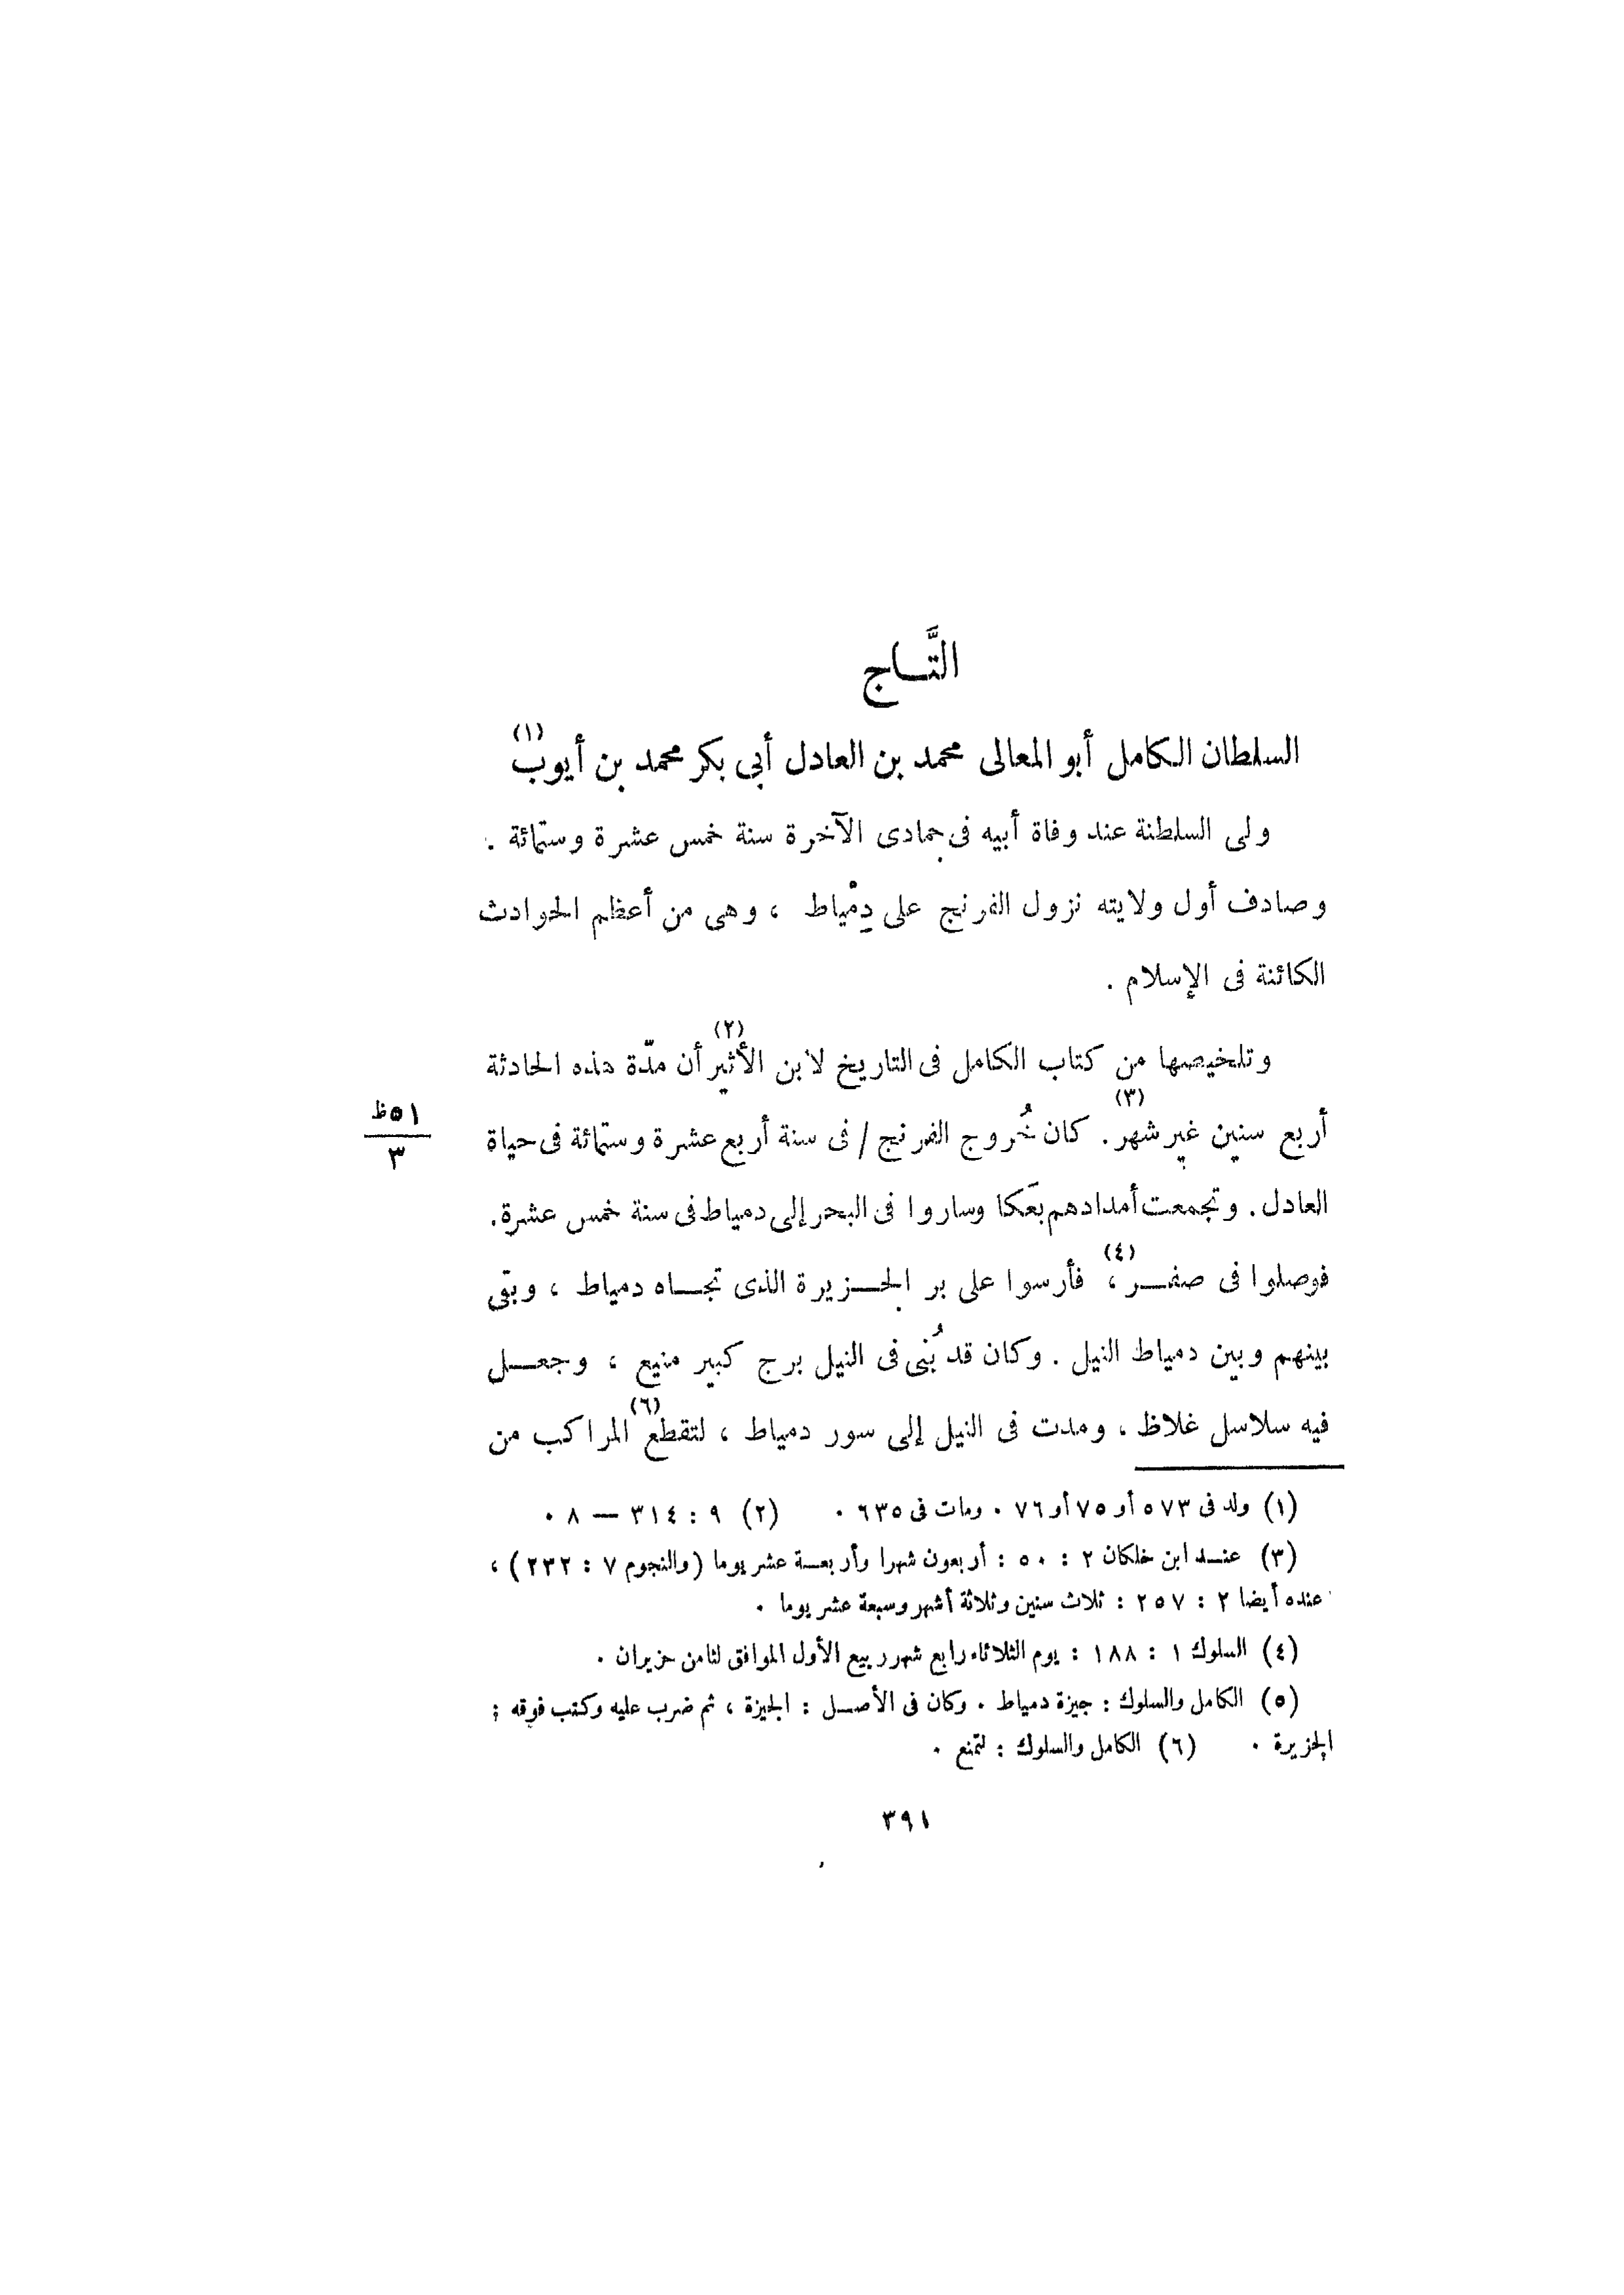 التَّاج
السلطان الكامل أبو المعالى محمد بن العادل أبى بكر محمد بن أيوب (١)
ولى السلطنة عند وفاة أبيه فى جمادى الآخرة سنة خمس عشرة وستمائة .
وصادف أول ولايته نزول الفرنج على دِمْياط ، وهى من أعظم الحوادث
الكائنة فى الإسلام .
وتلخيصها من كتاب الكامل فى التاريخ لابن الأثير (٢) أن مدّة هذه الحادثة
أربع سنين غير شهر (٣) . كان خُروج الفرنج / فى سنة أربع عشرة وستمائة فى حياة
٥١ظ
٣
العادل . وتجمعت أمدادهم بعَكا وساروا فى البحر إلى دمياط فى سنة خمس عشرة .
فوصلوا فى صفر (٤) ، فأرسوا على بر الجزيرة الذى تجاه دمياط ، وبقى
بينهم وبين دمياط النيل . وكان قد بُنى فى النيل برج كبير منيع ، وجعل
فيه سلاسل غلاظ ، ومدت فى النيل إلى سور دمياط ، لتقطع (٦) المراكب من
(١) ولد فى ٥٧٣ أو ٧٥ أو ٧٦ . ومات فى ٦٣٥ . (٢) ٩ : ٣١٤ — ٨ .
(٣) عند ابن خلكان ٢ : ٥٠ : أربعون شهرا وأربعة عشر يوما (والنجوم ٧ : ٢٣٢) ،
عنده أيضا ٢ : ٢٥٧ : ثلاث سنين وثلاثة أشهر وسبعة عشر يوما .
(٤) السلوك ١ : ١٨٨ : يوم الثلاثاء رابع شهر ربيع الأول الموافق لثامن حزيران .
(٥) الكامل والسلوك : جيزة دمياط . وكان فى الأصل : الجيزة ، ثم ضرب عليه وكتب فوقه :
الجزيرة . (٦) الكامل والسلوك : لتمنع .
٣٩١